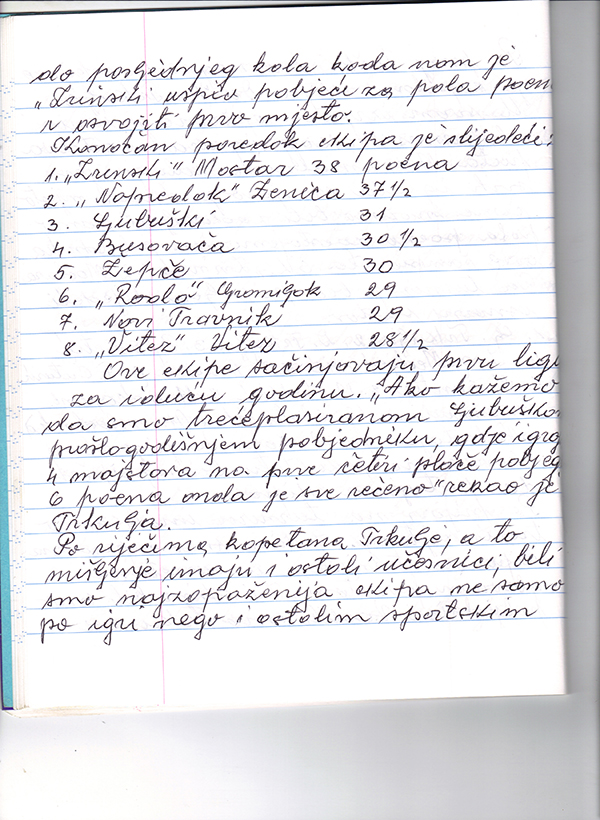 do posljednjeg kola kada nam je
"Zrinski uspio pobjeći za pola poen
i osvojiti prvo mjesto.
Konačan poredak ekipa je slijedeći:
1. "Zrinski" Mostar 38 poena
2. "Napredak" Zenica 37 1/2
3. Ljubuški 31
4. Busovača 30 1/2
5. Žepče 30
6. "Rodoč" 29
7. Novi Travnik 29
8. "Vitez" Vitez 28 1/2
Ove ekipe sačinjavaju prvu ligu
za iduću godinu. "Ako kažemo
da smo trećeplasiranom Ljubuškom
prošlogodišnjem pobjedniku, gdje igra
4 majstora na prve četiri ploče pobjeg
6 poena onda je sve rečeno" rekao je
Trkulja.
Po riječima kapetana Trkulje, a to
mišljenje imaju i ostali učesnici, bili
smo najzapaženija ekipa ne samo
po igri nego i ostalim sportskim